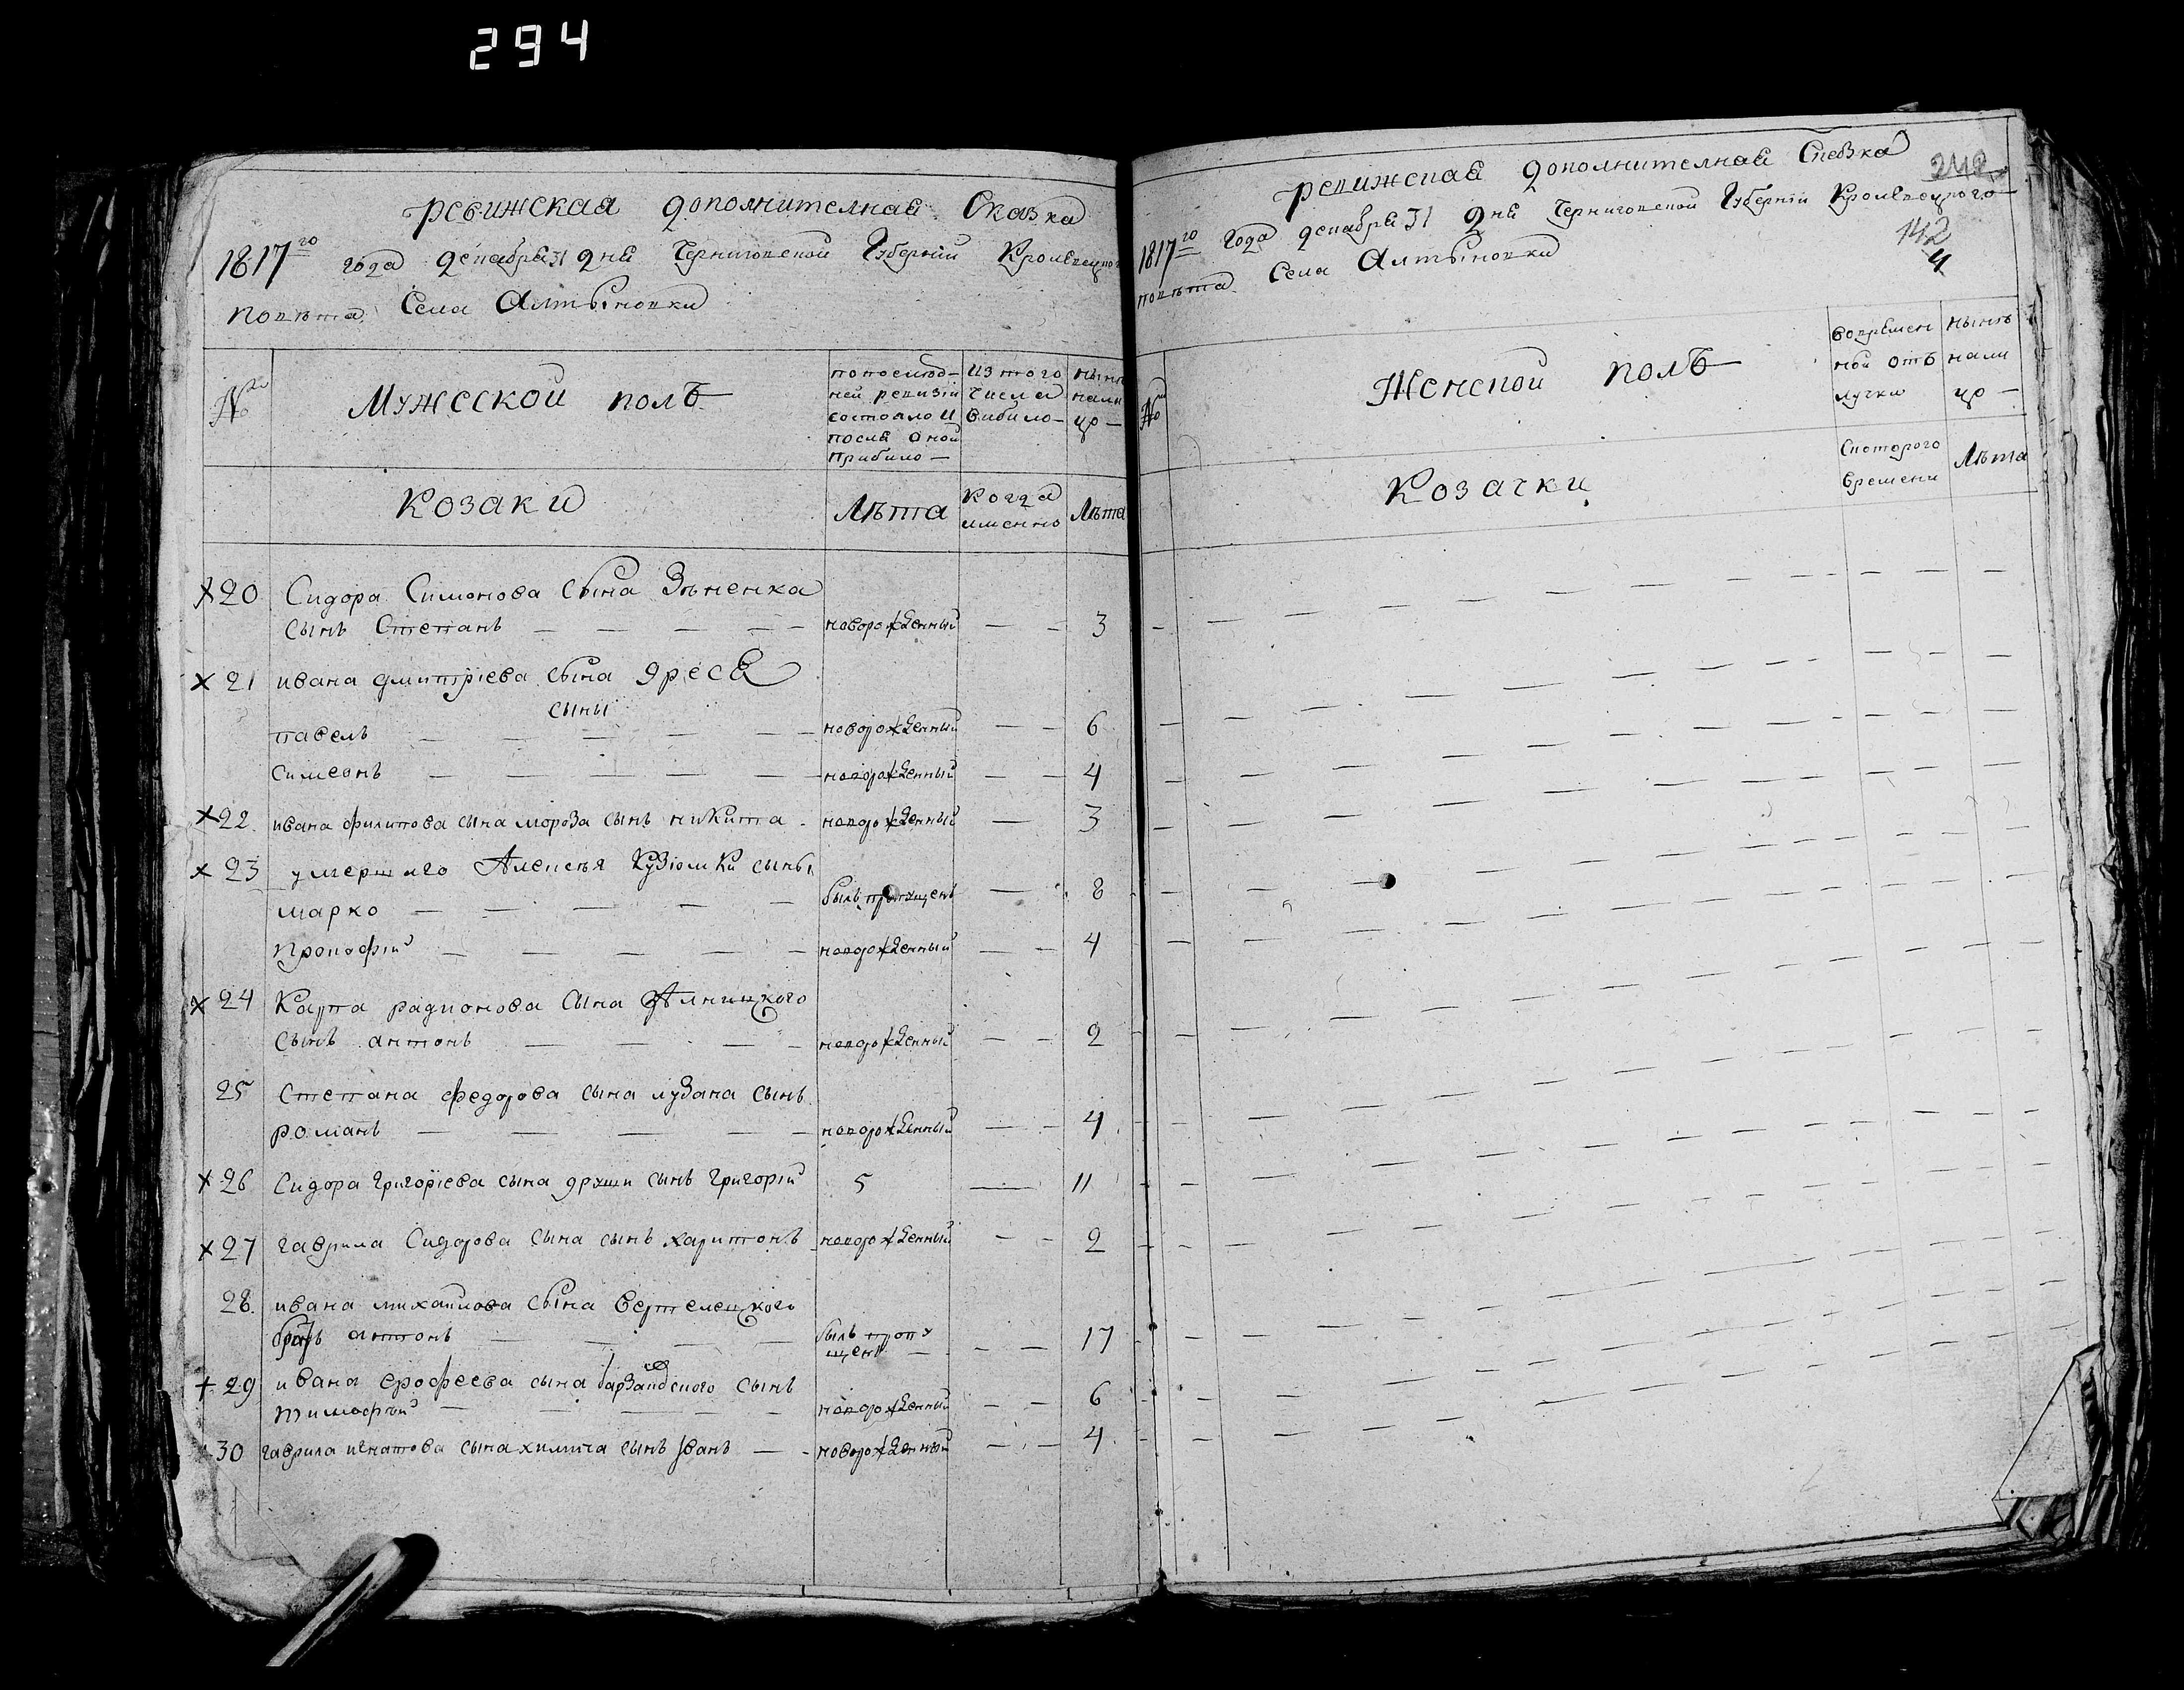 294
Ревижская дополнителная Сказка
1817го года декабря 31 дня Черниговской Губернии Кролевецкого
повѣта Села Алтыновки
№
Мужеской полъ
попослѣд-
ней ревизіи
состояло и
после оной
прибило —
Из того
числа
вибило —
нынѣ
нали
цо —
Козаки
Лѣта
Когда
именно
Лѣта
20 Сидора Симонова сына Зѣненка
сынъ Степанъ — — — — — новорожденный — — 3
21 ивана дмитріева сына яреся
сыны
павелъ — — — — — новорожденный — — 6
Симеонъ — — — — — новорожденный — — 4
22 ивана филипова сына мороза сынъ никита — новорожденный — 3
23 умершаго Алексѣя Кузіомки сыны
марко — — — — — былъ пропущенъ — 8
Прокофій — — — — — новорожденный — — 4
24 Карпа радионова сына
сынъ антонъ — — — — новорожденный — — 2
25 Степана федорова сына лузана сынъ
романъ — — — — новорожденный — — 4
26 Сидора григоріева сына сынъ григорій 5 — 11
27 гаврила Сидорова сына сынъ харитонъ новорожденный — — 2
28 ивана михаилова сына вертелецкого
братъ антонъ — — — — былъ пропу
щенъ — — — 17
29 ивана ерофеева сына сынъ
тимофѣй — — — — — новорожденный — — 6
30 гаврила игнатова сына химича сынъ іванъ — новорожденный — — 4
Ревижская дополнителная Сказка
242
1817го года декабря 31 дня Черниговской Губерніи Кролевецкого
142
4
повѣта Села Алтыновки
№
Женской полъ
вовремен
ной отъ
лучки
нынѣ
нали
цо —
Козачки
Скоторого
времени
Лѣта